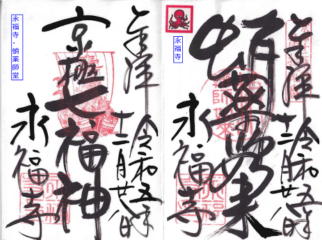 永福寺・蛸薬師堂
奉拝
令和五年
十二月廿八
京極七福神
永福寺
永福寺
奉拝
令和五年
十二月廿八
蛸薬師如来
永福寺